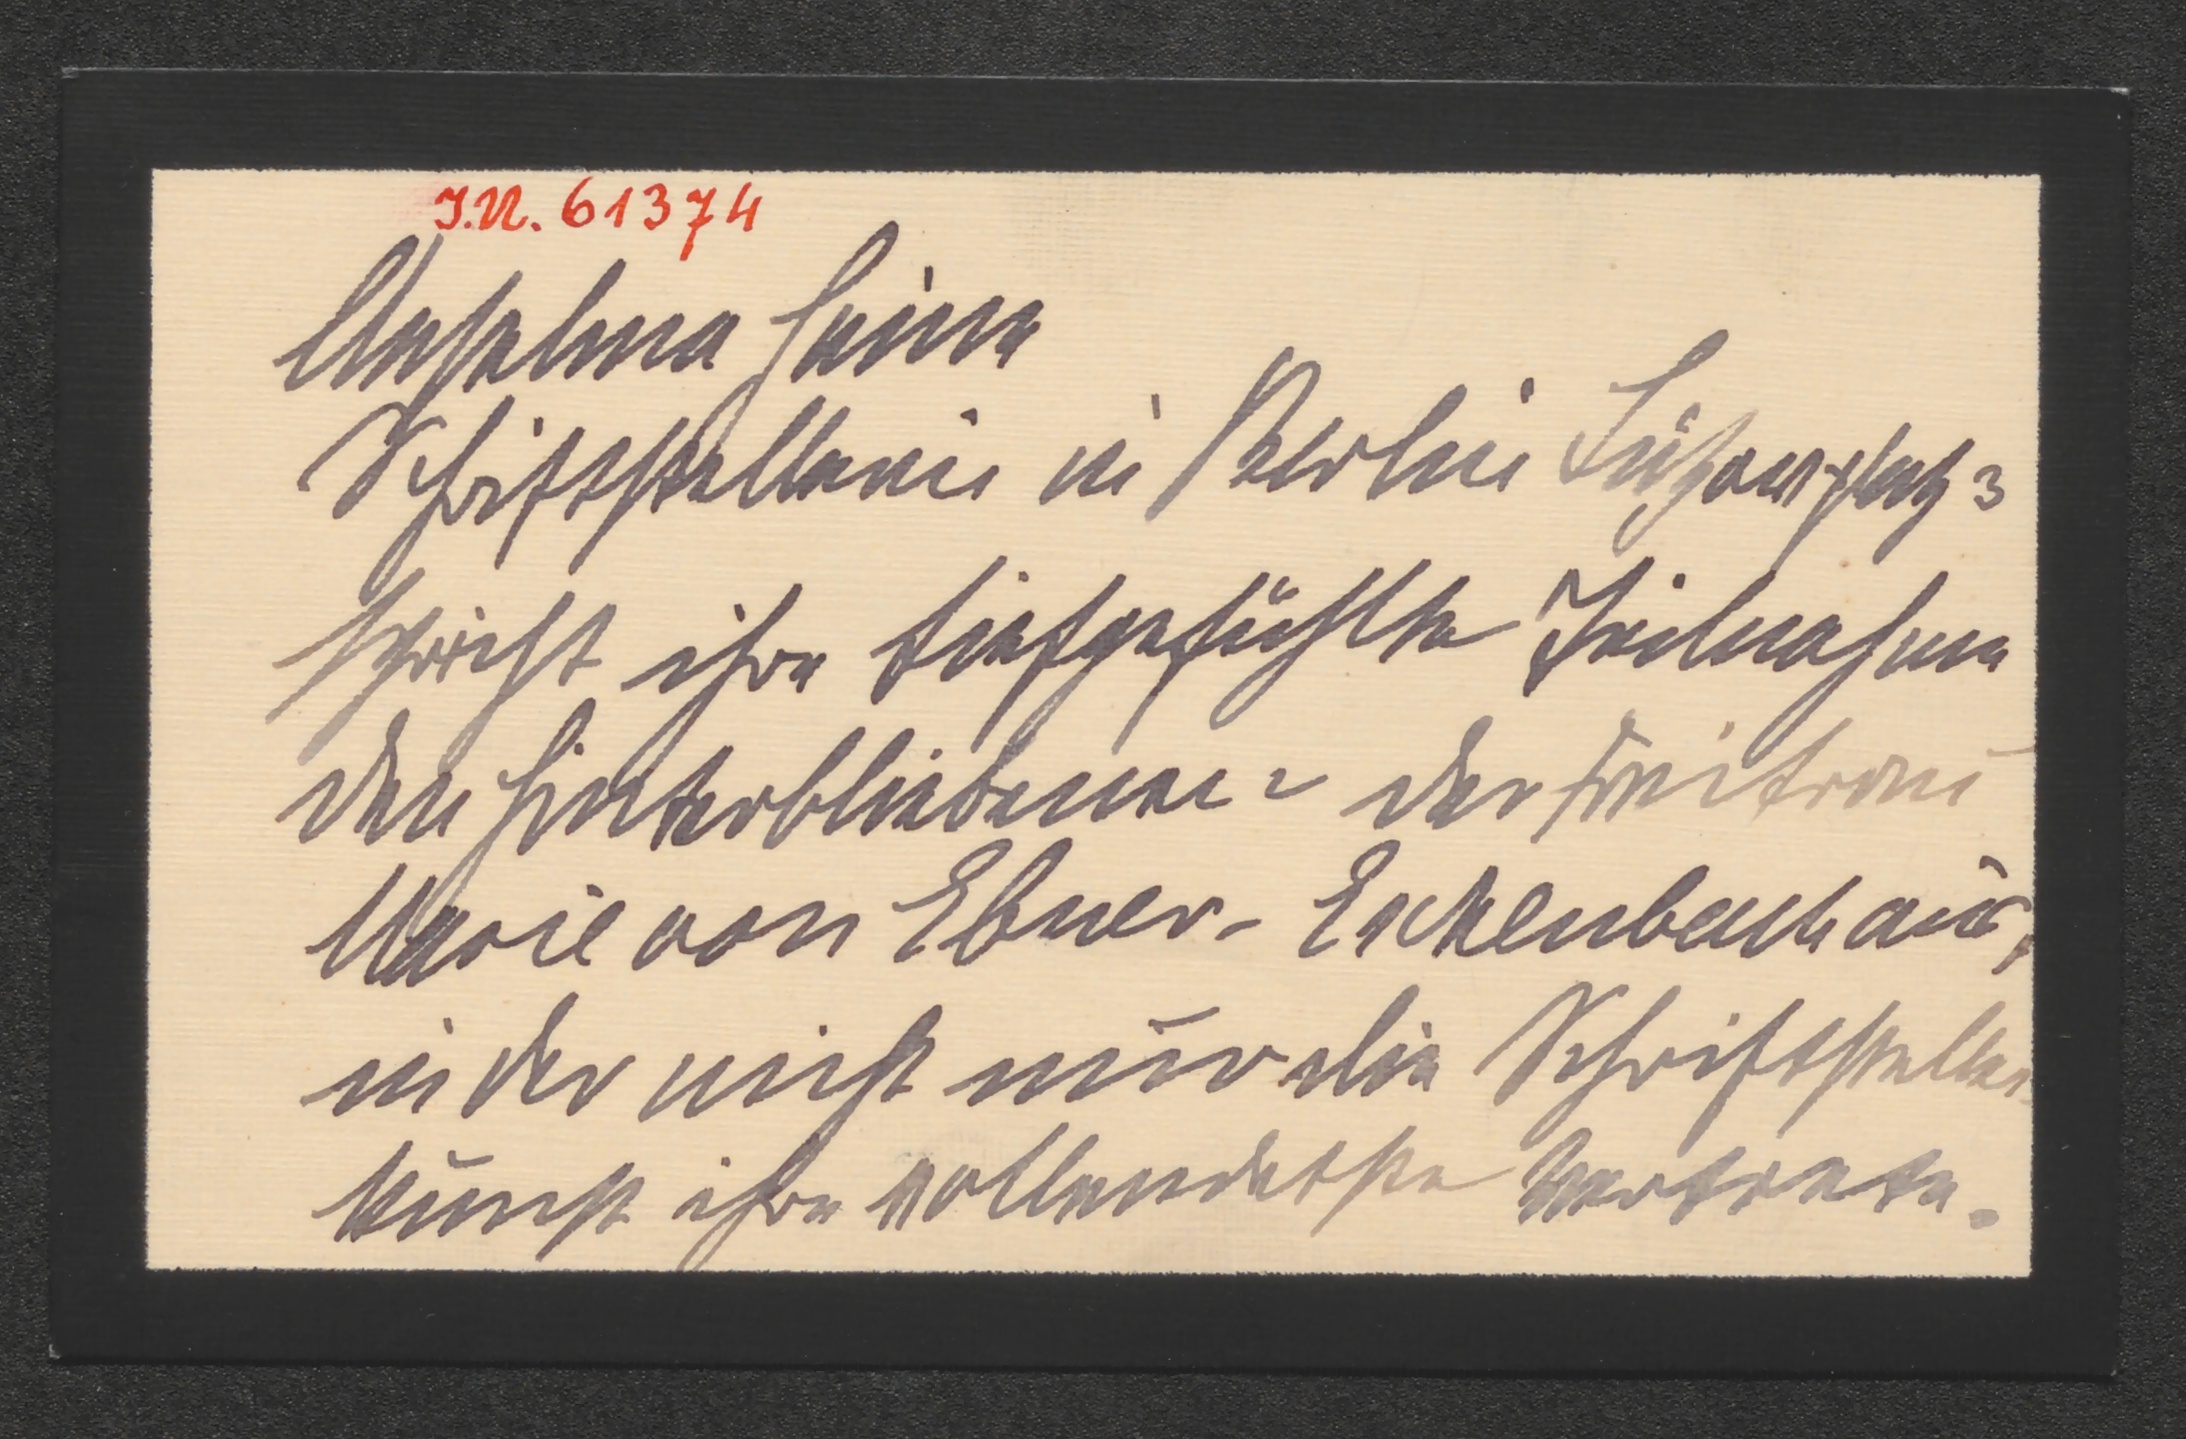 J.N. 61374
Anselma Heine
Schriftstellerin in Berlin Lützowplatz 3
spricht ihre tiefgefühlte Teilnahme
den Hinterbliebenen der Freifrau
Marie von Ebner-Eschenbach aus,
in der nicht nur die Schriftsteller
kunst ihre vollendetste Vertreterin